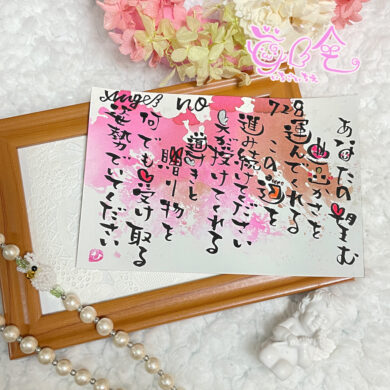 Angel no 728
あなたの望む
豊かさを
運んでくれる
この道を
進み続けてください
天が授けてくれる
導きと
贈り物を
何でも受け取る
姿勢でいてください